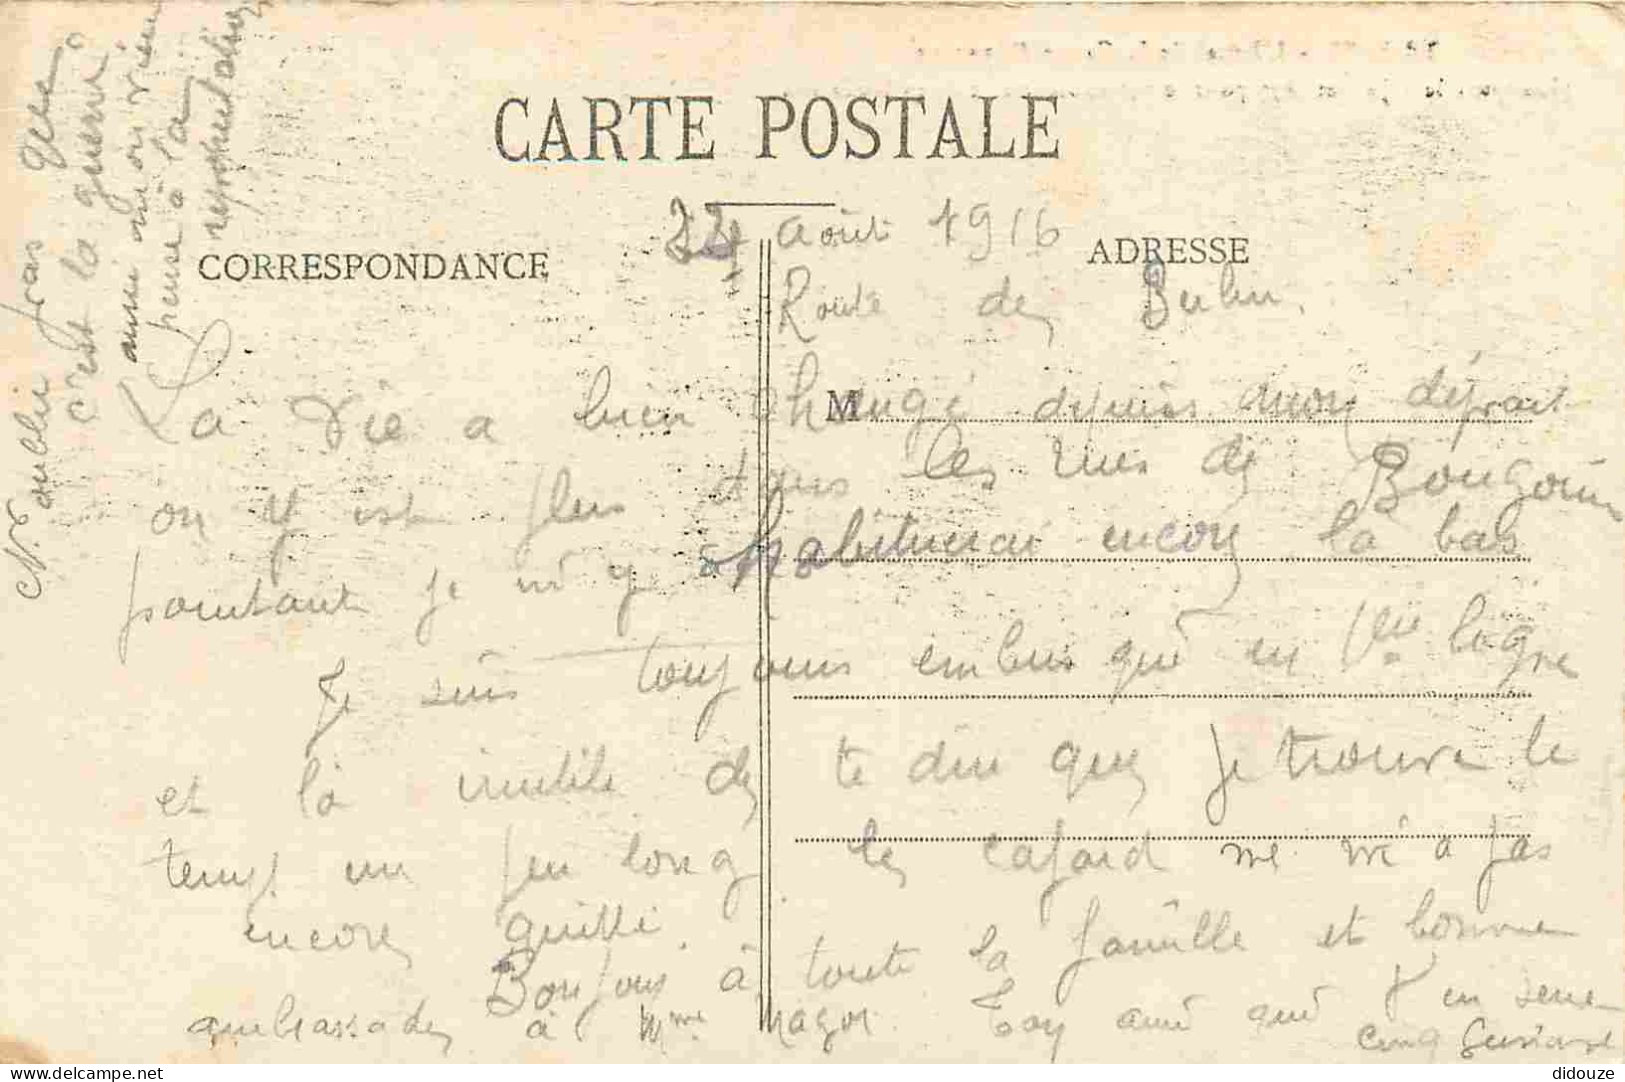 CARTE POSTALE
CORRESPONDANCE
ADRESSE
août 1916
Route de Berlin.
La vie a bien changé depuis mon départ
M
on y est plus dans les rues de Bourgoin
pourtant je m'y habituerai encore la bas
Je suis toujours embusqué en 1ere ligne
et là inutile de te dire que je trouve le
temps un peu long le cafard ne m'a pas
encore quitté.
Bonjour à toute la famille et bonne
ambassade à Mme Ton ami qui t'en serre
cinq
N'oublie pas que
c'est la guerre
ami on
pense à la
didouze